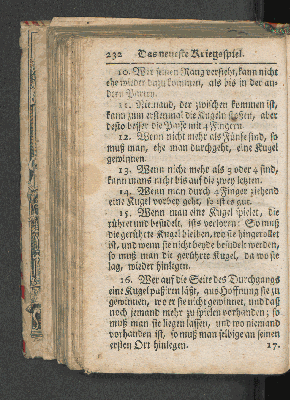 232 Das neueste Kriegsspiel.
10. Wer seinen Rang versieht, kann nicht
ehe wieder darzu gelangen, als bis in der an-
dern Partey.
11. Niemand, der zwischen kommen ist,
kann zum erstenmal die Kugeln stoßen, aber
desto besser die Passe mit 4 Fingern.
12. Wenn nicht mehr als Fünfe sind, so
muß man, ehe man durchgeht, eine Kugel
gewinnen.
13. Wenn nicht mehr als 3 oder 4 sind,
kann mans nicht bis auf die zwey letzten.
14. Wenn man durch 4 Finger ziehend
eine Kugel vorbey geht, so ist es gut.
15. Wenn man eine Kugel spielet, die
rühret und besudelt, ists verloren: So muß
die gerührte Kugel bleiben, wo sie hingerollet
ist, und wenn sie nicht beyde besudelt werden,
so muß man die gerührte Kugel, da wo sie
lag, wieder hinlegen.
16. Wer auf die Seite des Durchgangs
eine Kugel paßiren läßt, aus Hoffnung sie zu
gewinnen, wo er sie nicht gewinnet, und daß
noch jemand mehr zu spielen vorhanden; so
muß man sie liegen lassen, und wo niemand
vorhanden ist, so muß man selbige an seinen
ersten Ort hinlegen.
17.